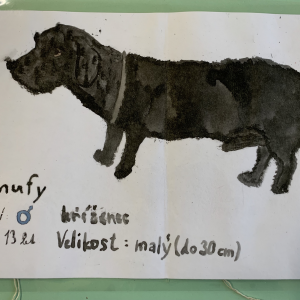 nufy
♂ kříženec
13 let
Velikost: malý (do 30 cm)